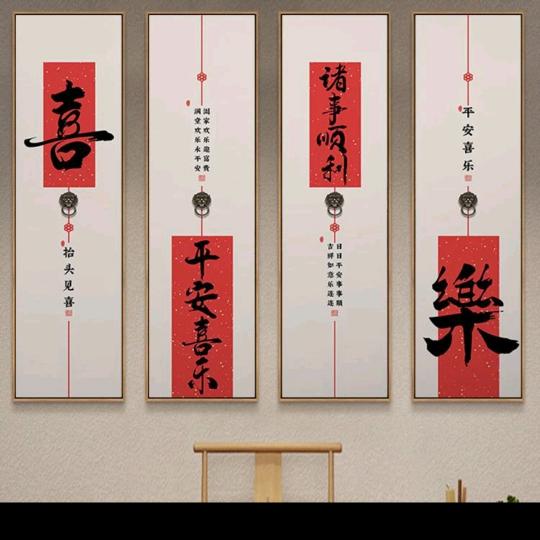 喜
抬头见喜
阖家欢乐迎富贵
满堂欢乐永平安
平安喜乐
诸事顺利
日日平安事事顺
吉祥如意乐连连
平安喜乐
樂